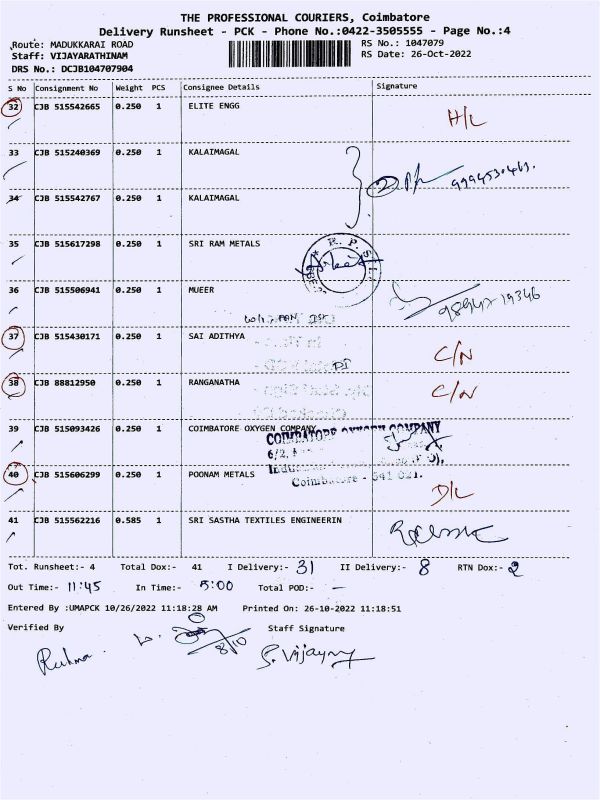 THE PROFESSIONAL COURIERS, Coimbatore
Delivery Runsheet - PCK - Phone No.:0422-3505555 - Page No.:4
Route: MADUKKARAI ROAD
Staff: VIJAYARATHINAM
DRS No.: DCJB104707904
RS No.: 1047079
RS Date: 26-Oct-2022
S No Consignment No Weight PCS Consignee Details Signature
32 CJB 515542665 0.250 1 ELITE ENGG H/L
33 CJB 515240369 0.250 1 KALAIMAGAL
34 CJB 515542767 0.250 1 KALAIMAGAL
35 CJB 515617298 0.250 1 SRI RAM METALS
36 CJB 515506941 0.250 1 MUEER
37 CJB 515430171 0.250 1 SAI ADITHYA C/N
38 CJB 88812950 0.250 1 RANGANATHA C/N
39 CJB 515093426 0.250 1 COIMBATORE OXYGEN COMPANY
COIMBATORE OXYGEN COMPANY
Coimbatore - 641 021.
40 CJB 515606299 0.250 1 POONAM METALS D/L
41 CJB 515562216 0.585 1 SRI SASTHA TEXTILES ENGINEERIN
Tot. Runsheet:- 4 Total Dox:- 41 I Delivery:- 31 II Delivery:- 8 RTN Dox:- 2
Out Time:- 11:45 In Time:- 5:00 Total POD:- -
Entered By :UMAPCK 10/26/2022 11:18:28 AM Printed On: 26-10-2022 11:18:51
Verified By Staff Signature
8/10
S. Vijay